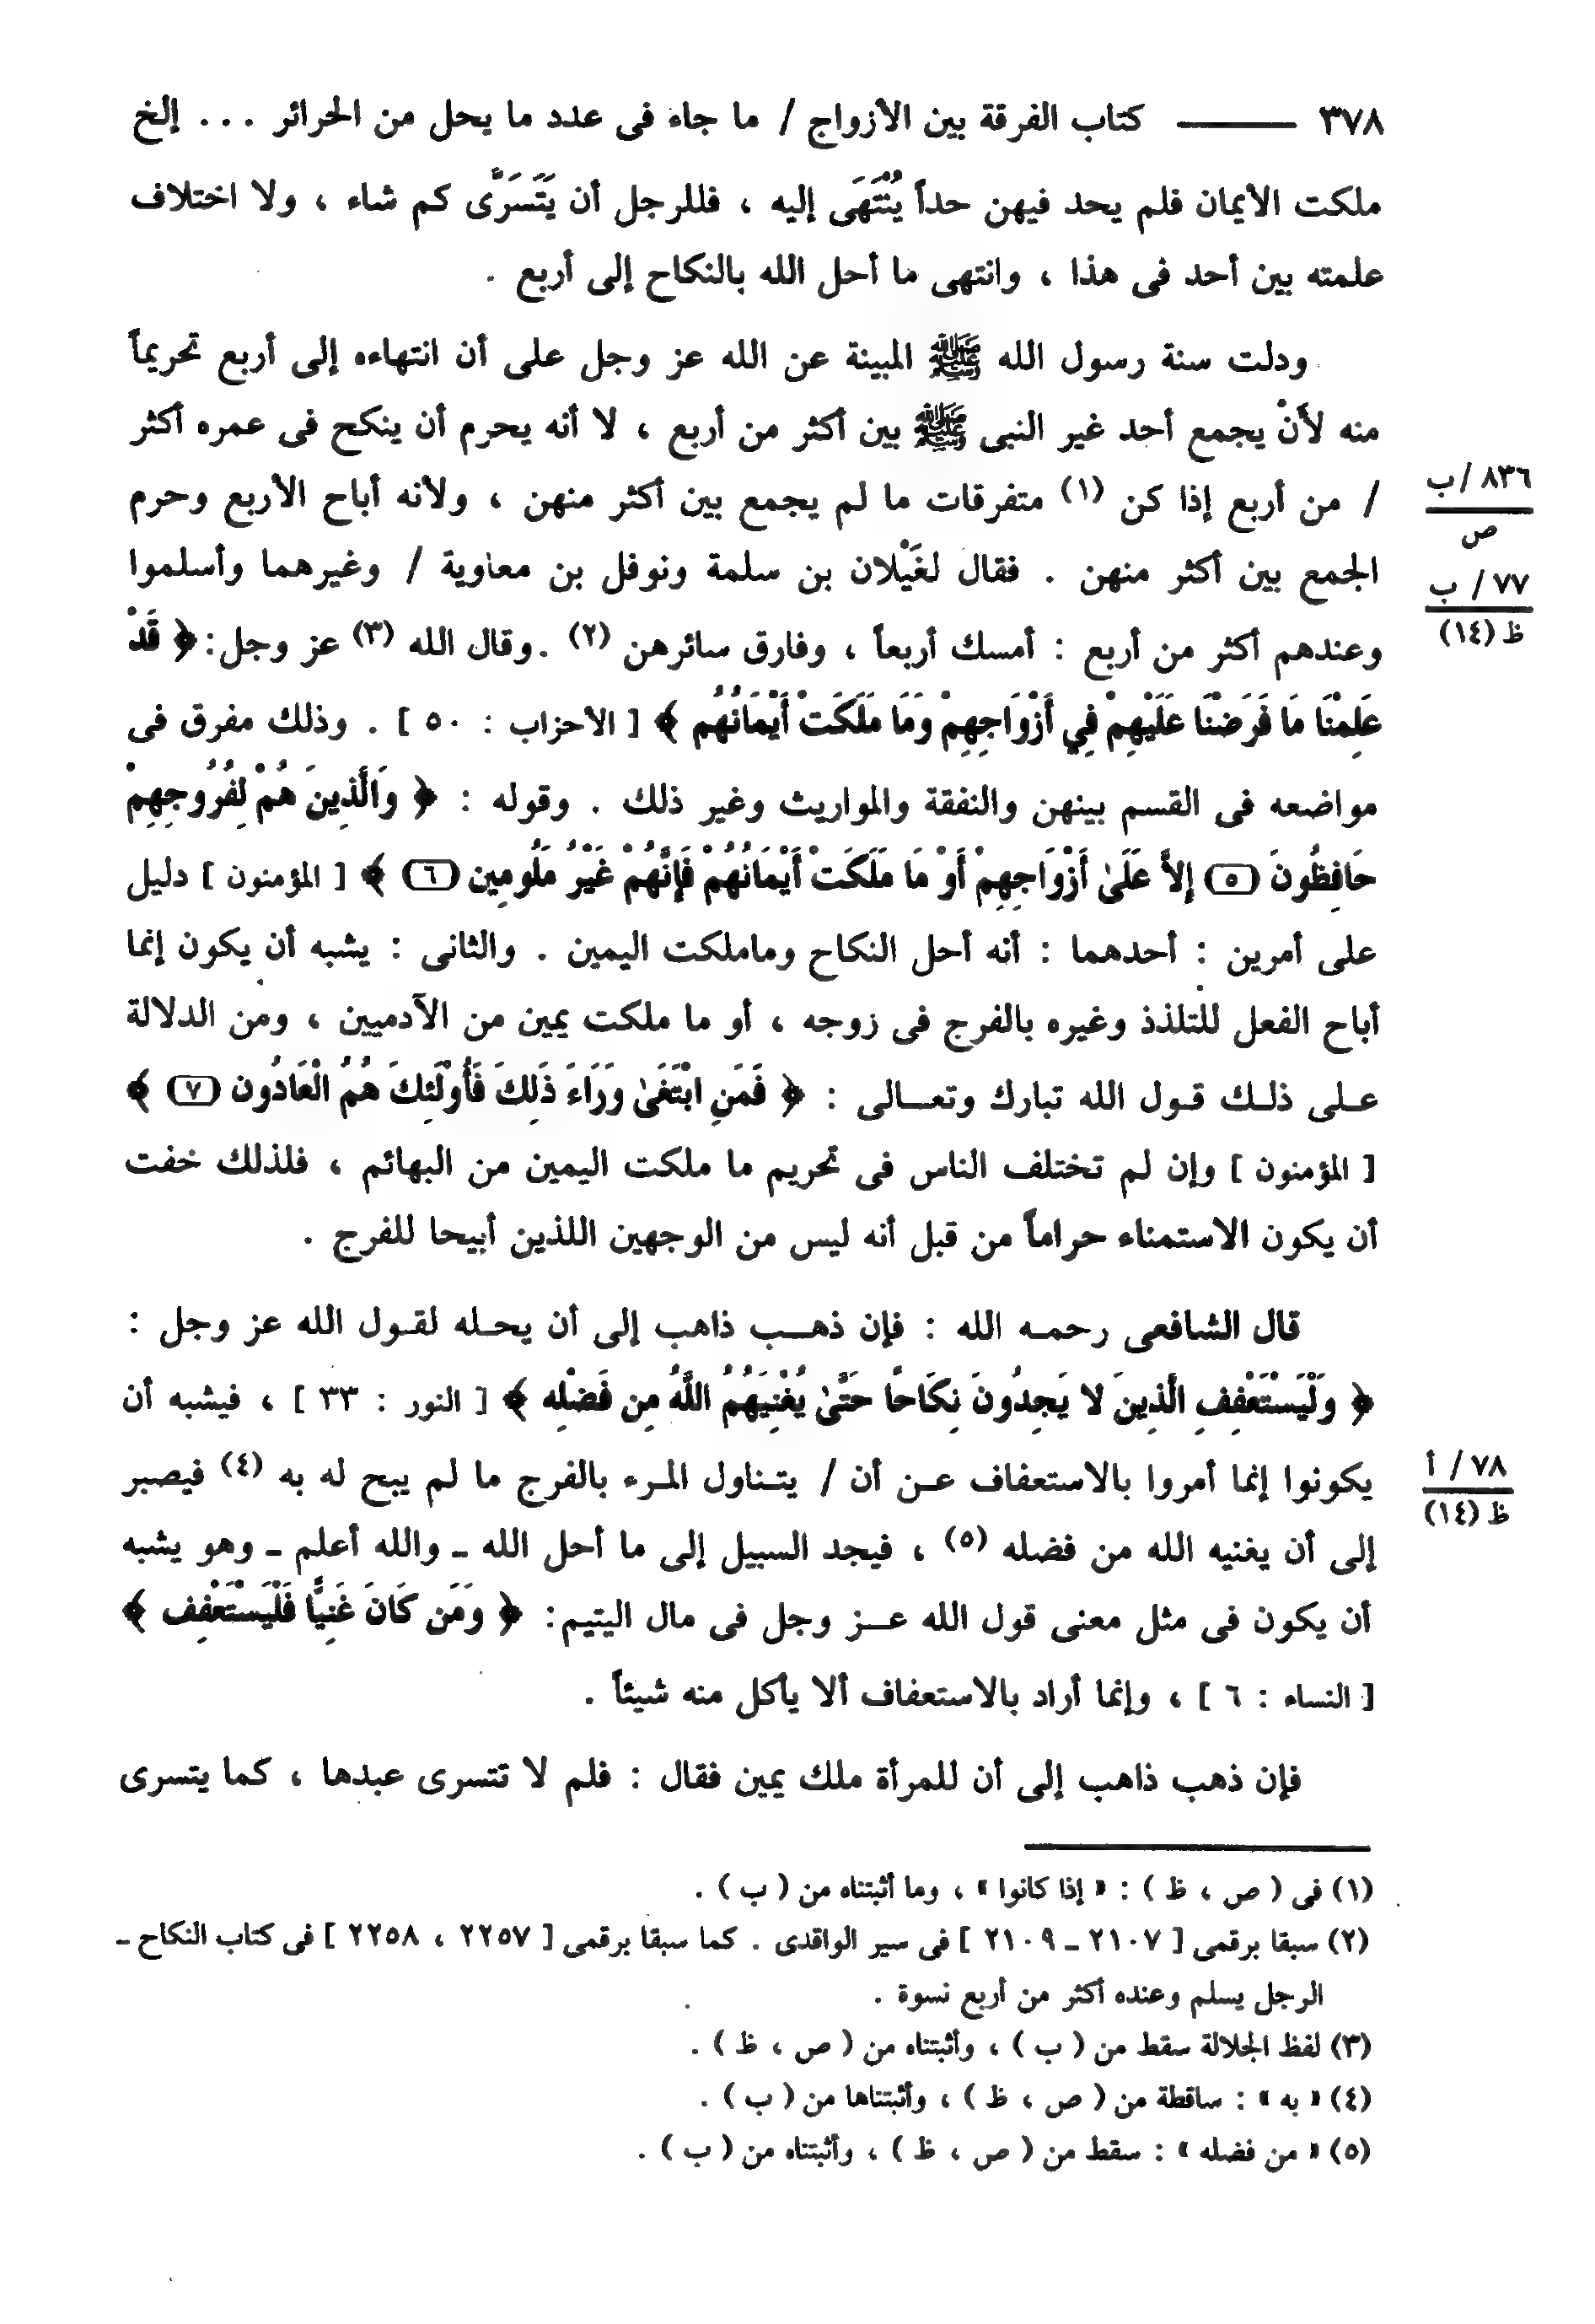 ٣٧٨ ——— كتاب الفرقة بين الأزواج / ما جاء فى عدد ما يحل من الحرائر ... إلخ
ملكت الأيمان فلم يحد فيهن حداً يُنْتَهَى إليه ، فللرجل أن يَتَسَرَّى كم شاء ، ولا اختلاف
علمته بين أحد فى هذا ، وانتهى ما أحل الله بالنكاح إلى أربع .
ودلت سنة رسول الله ﷺ المبينة عن الله عز وجل على أن انتهاءه إلى أربع تحريماً
منه لأَنْ يجمع أحد غير النبى ﷺ بين أكثر من أربع ، لا أنه يحرم أن ينكح فى عمره أكثر
/ من أربع إذا كن (١) متفرقات ما لم يجمع بين أكثر منهن ، ولأنه أباح الأربع وحرم
٨٣٦ /ب
ص
الجمع بين أكثر منهن . فقال لغَيْلان بن سلمة ونوفل بن معاوية / وغيرهما وأسلموا
٧٧ / ب
ظ (١٤)
وعندهم أكثر من أربع : أمسك أربعاً ، وفارق سائرهن (٢) .وقال الله (٣) عز وجل: ﴿ قَدْ
عَلِمْنَا مَا فَرَضْنَا عَلَيْهِمْ فِي أَزْوَاجِهِمْ وَمَا مَلَكَتْ أَيْمَانُهُم ﴾ [ الأحزاب : ٥٠ ] . وذلك مفرق فى
مواضعه فى القسم بينهن والنفقة والمواريث وغير ذلك . وقوله : ﴿ وَالَّذِينَ هُمْ لِفُرُوجِهِمْ
حَافِظُونَ (٥) إِلاَّ عَلَىٰ أَزْوَاجِهِمْ أَوْ مَا مَلَكَتْ أَيْمَانُهُمْ فَإِنَّهُمْ غَيْرُ مَلُومِين (٦) ﴾ [ المؤمنون ] دليل
على أمرين : أحدهما : أنه أحل النكاح وماملكت اليمين . والثانى : يشبه أن يكون إنما
أباح الفعل للتلذذ وغيره بالفرج فى زوجه ، أو ما ملكت يمين من الآدميين ، ومن الدلالة
على ذلك قول الله تبارك وتعالى : ﴿ فَمَنِ ابْتَغَىٰ وَرَاءَ ذَلِكَ فَأُوْلَئِكَ هُمُ الْعَادُون (٧) ﴾
[ المؤمنون ] وإن لم تختلف الناس فى تحريم ما ملكت اليمين من البهائم ، فلذلك خفت
أن يكون الاستمناء حراماً من قبل أنه ليس من الوجهين اللذين أبيحا للفرج .
قال الشافعى رحمه الله : فإن ذهب ذاهب إلى أن يحله لقول الله عز وجل :
﴿ وَلْيَسْتَعْفِفِ الَّذِينَ لا يَجِدُونَ نِكَاحًا حَتَّىٰ يُغْنِيَهُمُ اللَّهُ مِن فَضْلِه ﴾ [ النور : ٣٣ ] ، فيشبه أن
يكونوا إنما أمروا بالاستعفاف عن أن / يتناول المرء بالفرج ما لم يبح له به (٤) فيصبر
٧٨ / أ
ظ (١٤)
إلى أن يغنيه الله من فضله (٥) ، فيجد السبيل إلى ما أحل الله ـ والله أعلم ـ وهو يشبه
أن يكون فى مثل معنى قول الله عز وجل فى مال اليتيم: ﴿ وَمَن كَانَ غَنِيًّا فَلْيَسْتَعْفِف ﴾
[ النساء : ٦ ] ، وإنما أراد بالاستعفاف ألا يأكل منه شيئاً .
فإن ذهب ذاهب إلى أن للمرأة ملك يمين فقال : فلم لا تتسرى عبدها ، كما يتسرى
(١) فى ( ص ، ظ ) : « إذا كانوا » ، وما أثبتناه من ( ب ) .
(٢) سبقا برقمى [ ٢١٠٧ ـ ٢١٠٩ ] فى سير الواقدى . كما سبقا برقمى [ ٢٢٥٧ ، ٢٢٥٨ ] فى كتاب النكاح ـ
الرجل يسلم وعنده أكثر من أربع نسوة .
(٣) لفظ الجلالة سقط من ( ب ) ، وأثبتناه من ( ص ، ظ ) .
(٤) « به » : ساقطة من ( ص ، ظ ) ، وأثبتناها من ( ب ) .
(٥) « من فضله » : سقط من ( ص ، ظ ) ، وأثبتناه من ( ب ) .